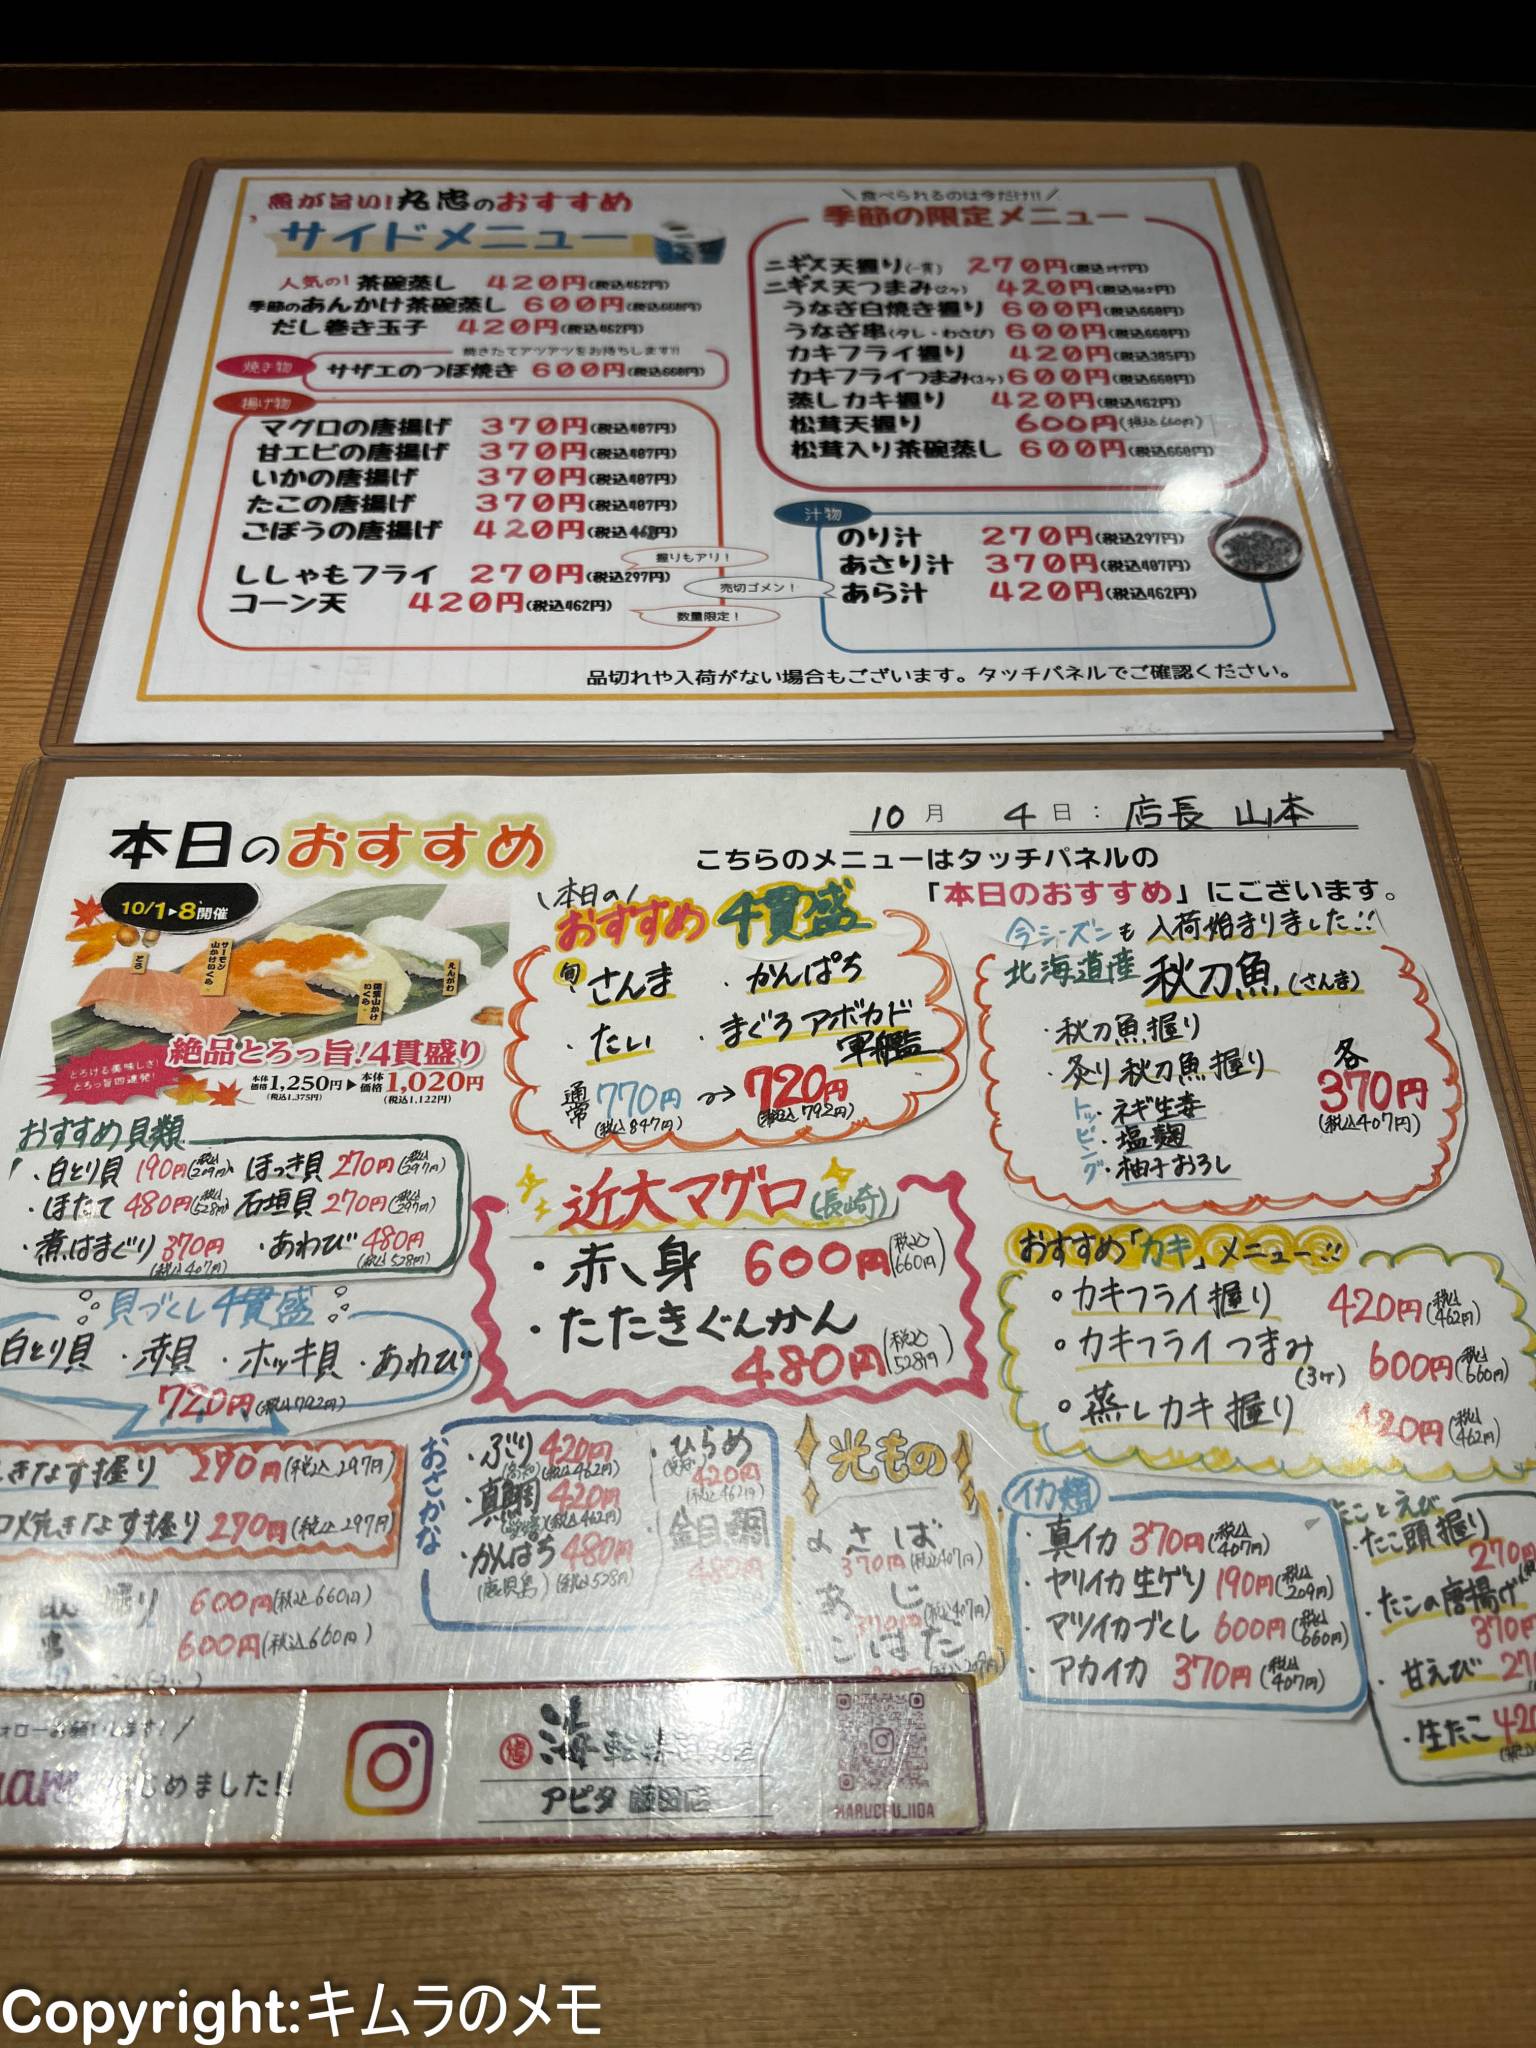 魚が旨い!丸忠のおすすめ
サイドメニュー
人気の!茶碗蒸し 420円(税込462円)
季節のあんかけ茶碗蒸し 600円(税込660円)
だし巻き玉子 420円(税込462円)
焼きたてアツアツをお持ちします!!
焼き物 サザエのつぼ焼き 600円(税込660円)
揚げ物
マグロの唐揚げ 370円(税込407円)
甘エビの唐揚げ 370円(税込407円)
いかの唐揚げ 370円(税込407円)
たこの唐揚げ 370円(税込407円)
ごぼうの唐揚げ 420円(税込462円)
握りもアリ!
ししゃもフライ 270円(税込297円)
売切ゴメン!
コーン天 420円(税込462円)
数量限定!
\食べられるのは今だけ!!/
季節の限定メニュー
ニギス天握り(一貫) 270円
ニギス天つまみ(2ヶ) 420円
うなぎ白焼き握り 600円(税込660円)
うなぎ串(タレ・わさび) 600円(税込660円)
カキフライ握り 420円(税込385円)
カキフライつまみ(3ヶ) 600円(税込660円)
蒸しカキ握り 420円(税込462円)
松茸天握り 600円(税込660円)
松茸入り茶碗蒸し 600円(税込660円)
汁物
のり汁 270円(税込297円)
あさり汁 370円(税込407円)
あら汁 420円(税込462円)
品切れや入荷がない場合もございます。タッチパネルでご確認ください。
本日のおすすめ
10月 4日: 店長 山本
こちらのメニューはタッチパネルの
「本日のおすすめ」にございます。
10/1▶8開催
とろ
サーモン山かけいくら
えんがわ
絶品とろっ旨!4貫盛り
とろける美味しさ!
とろっ旨四連発!
本体価格1,250円▶本体価格1,020円
(税込1,375円) (税込1,122円)
\本日の/
おすすめ4貫盛
旬 さんま ・かんぱち
・たい ・まぐろアボカド
軍艦
通常 770円→720円
(税込847円) (税込792円)
今シーズンも入荷始まりました!!
北海道産 秋刀魚(さんま)
・秋刀魚握り
・炙り秋刀魚握り
各
370円
(税込407円)
トッピング
・ネギ生姜
・塩麹
・柚子おろし
おすすめ貝類
・白とり貝 190円(税込209円) ほっき貝 270円(税込297円)
・ほたて 480円(税込528円) 石垣貝 270円(税込297円)
・煮はまぐり 370円 ・あわび 480円
(税込407円) (税込528円)
貝づくし4貫盛
白とり貝 ・赤貝 ・ホッキ貝 ・あわび
720円(税込792円)
近大マグロ(長崎)
・赤身 600円(税込660円)
・たたきぐんかん
480円(税込528円)
おすすめ「カキ」メニュー!!
カキフライ握り 420円(税込462円)
カキフライつまみ 600円(税込660円)
(3ヶ)
蒸しカキ握り 420円(税込462円)
きなす握り 270円(税込297円)
焼きなす握り 270円(税込297円)
握り 600円(税込660円)
串 600円(税込660円)
おさかな
・ぶり 420円
(税込462円)
・真鯛 420円
(税込462円)
・かんぱち 480円
(鹿児島)(税込528円)
・ひらめ
420円
(税込462円)
・金目鯛
480円
光もの
・〆さば
370円(税込407円)
・あじ
370円(税込407円)
・こはだ
イカ類
・真イカ 370円(税込407円)
・ヤリイカ生ゲソ 190円(税込209円)
・マツイカづくし 600円(税込660円)
・アカイカ 370円(税込407円)
たことえび
・たこ頭握り
270円
・たこの唐揚げ
370円
・甘えび
・生たこ
ォローお願いします!/
じめました!!
アピタ 飯田店
MARUCHU_IIDA
Copyright:キムラのメモ